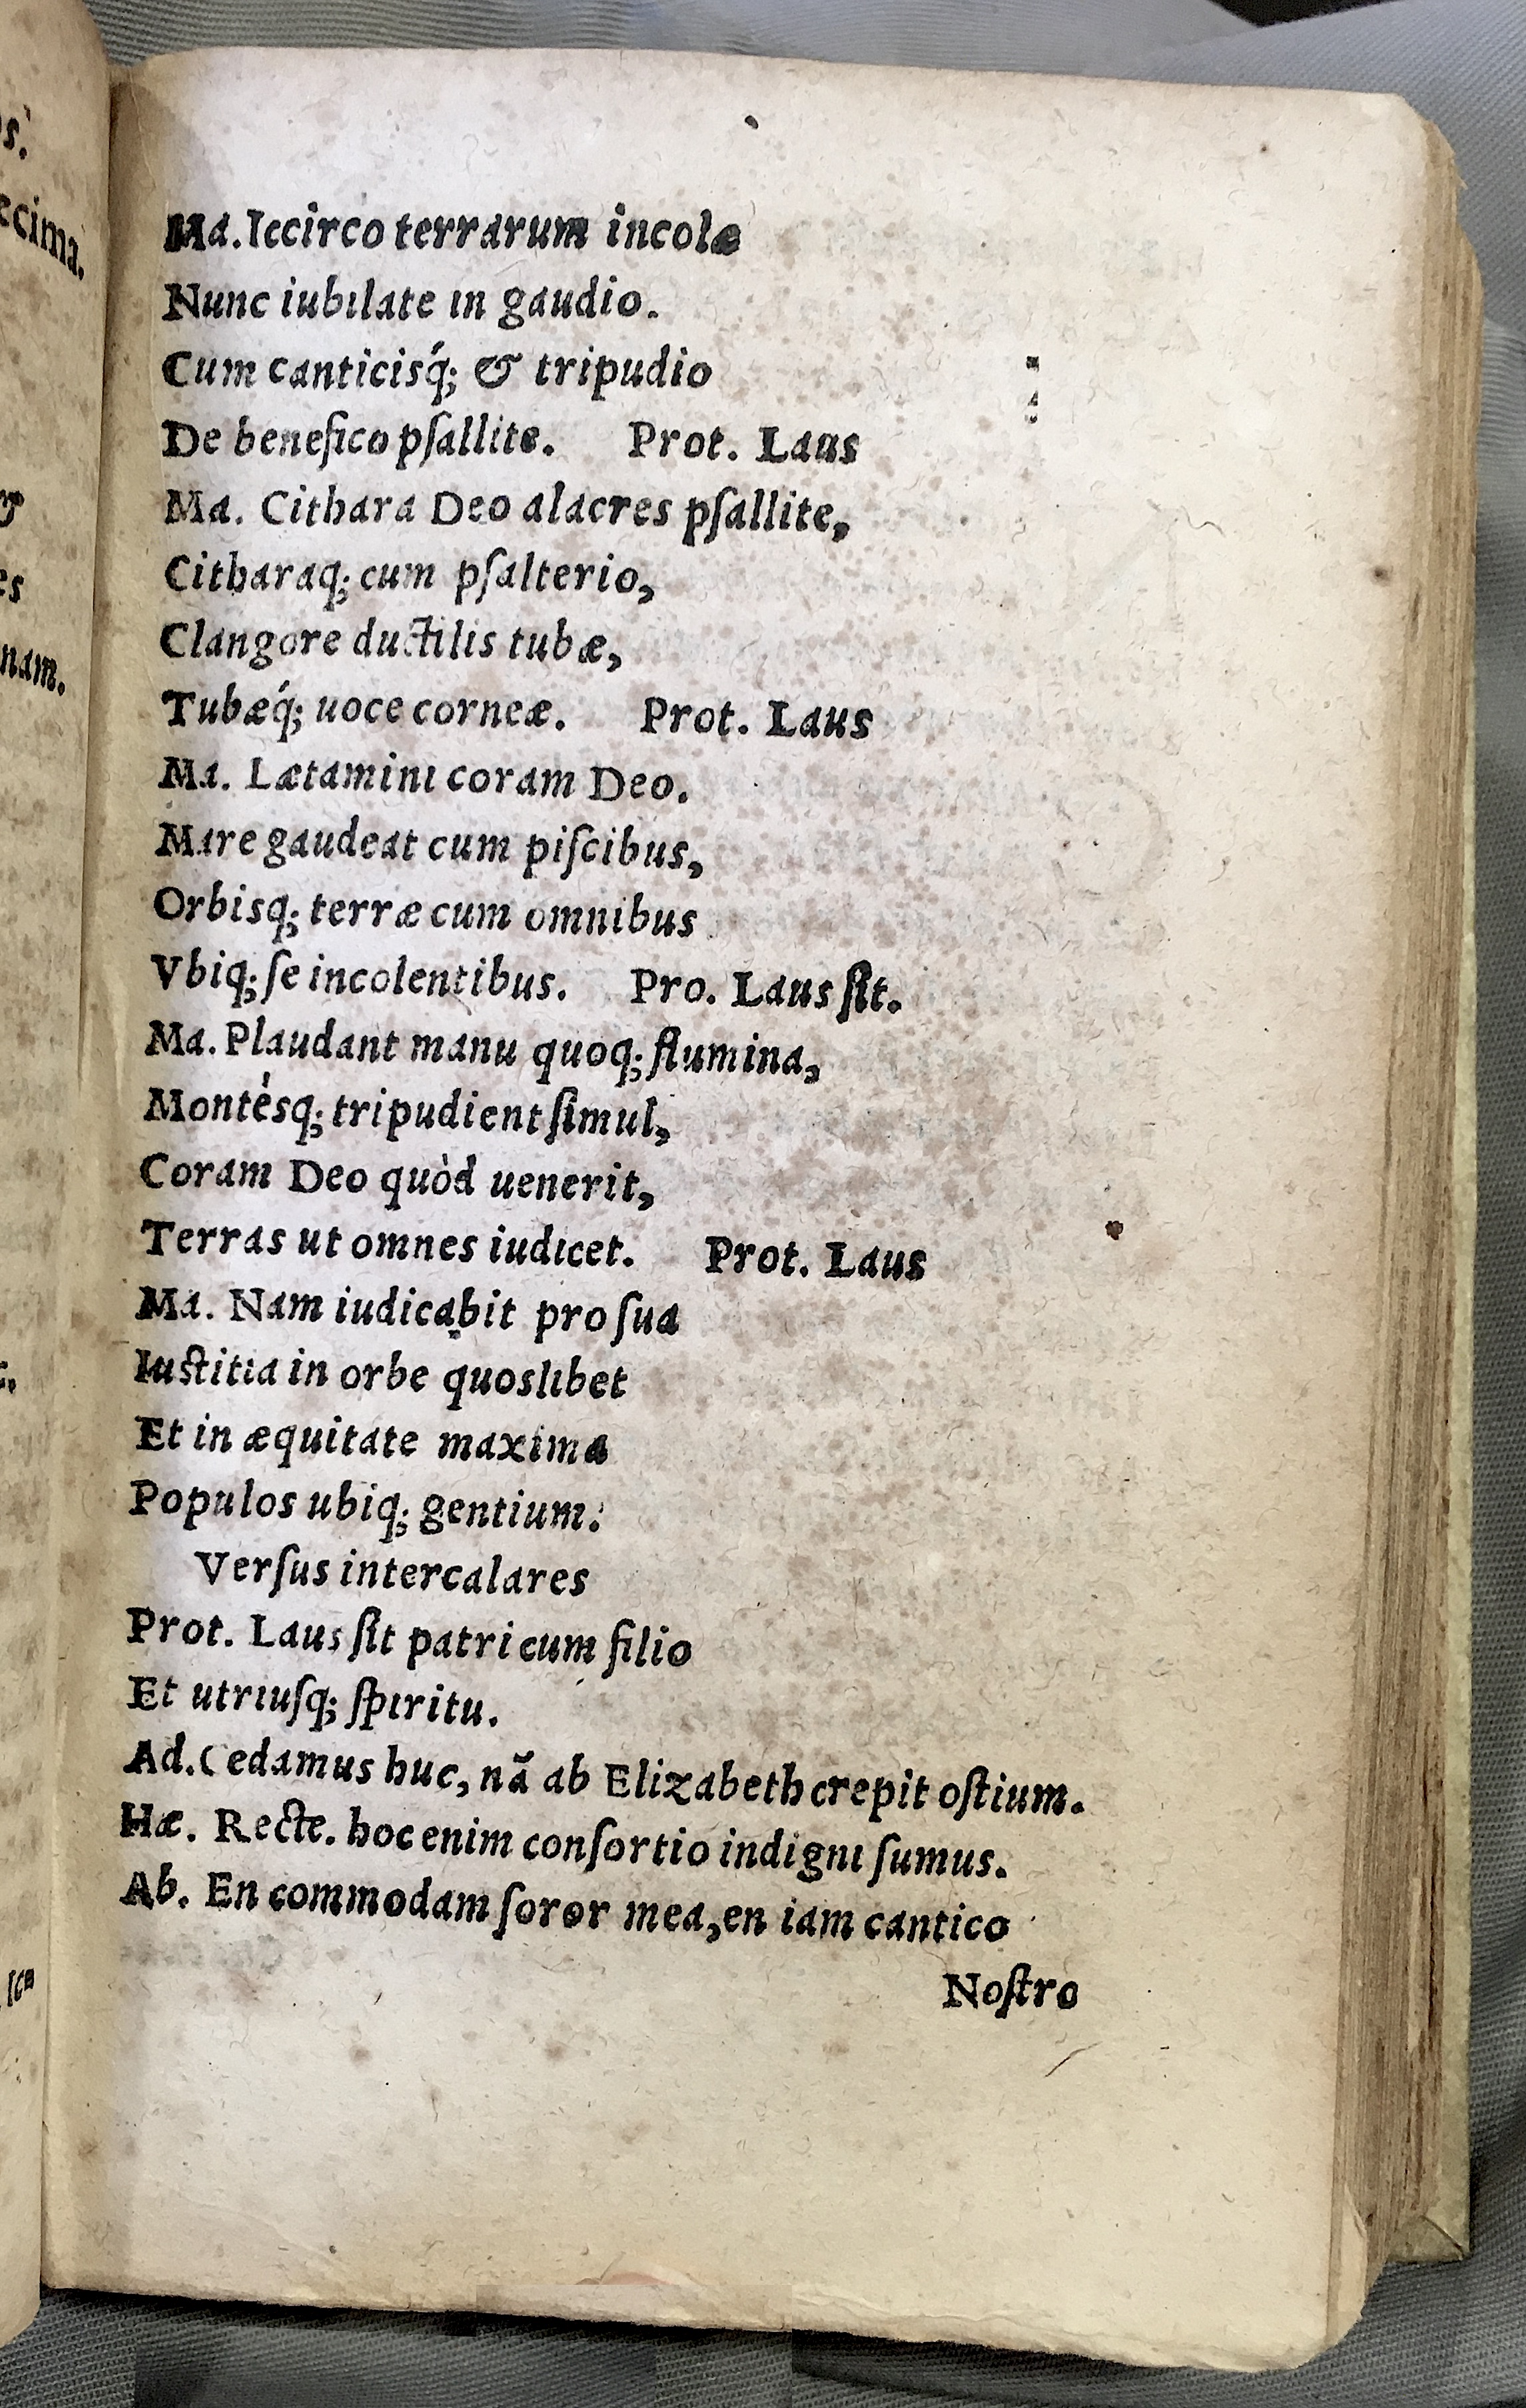 Ma. Iccirco terrarum incolæ
Nunc iubilate in gaudio.
Cum canticisq́; & tripudio
De benefico pſallite. Prot. Laus
Ma. Cithara Deo alacres pſallite,
Citharaq; cum pſalterio,
Clangore ductilis tubæ,
Tubæq́; uoce corneæ. Prot. Laus
Ma. Lætamini coram Deo.
Mare gaudeat cum piſcibus,
Orbisq; terræ cum omnibus
Vbiq; ſe incolentibus. Pro. Laus ſit.
Ma. Plaudant manu quoq; flumina,
Montésq; tripudient ſimul,
Coram Deo quòd uenerit,
Terras ut omnes iudicet. Prot. Laus
Ma. Nam iudicabit pro ſua
Iuſtitia in orbe quoslibet
Et in æquitate maxima
Populos ubiq; gentium.
Verſus intercalares
Prot. Laus ſit patri cum filio
Et utriuſq; ſpiritu.
Ad. Cedamus huc, nã ab Elizabeth crepit oſtium.
Hæ. Recte. hoc enim conſortio indigni ſumus.
Ab. En commodam ſoror mea, en iam cantico
Noſtro